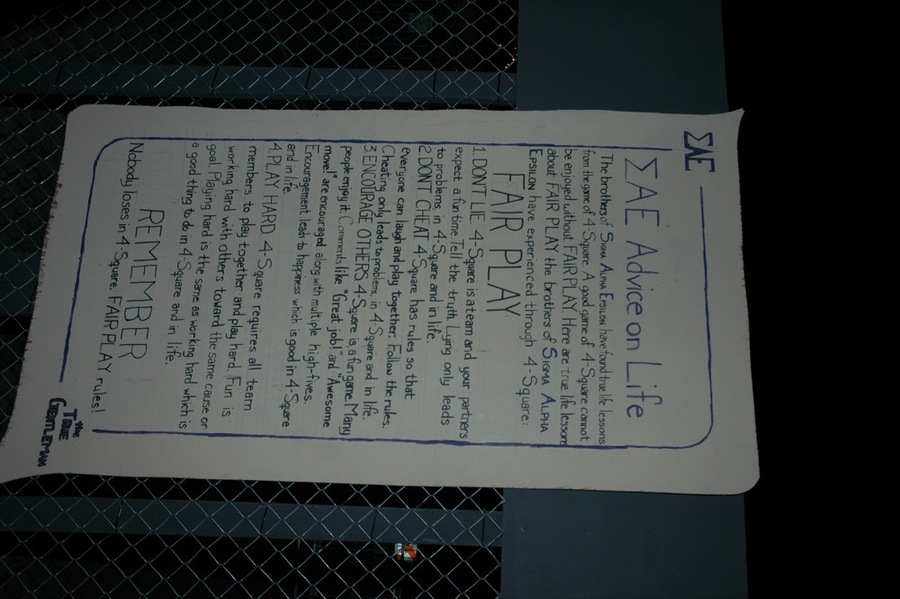 ΣAE
ΣAE Advice on Life
The brothers of SIGMA ALPHA EPSILON have found true life lessons
from the game of 4-Square. A good game of 4-Square cannot
be enjoyed without FAIR PLAY. Here are true life lessons
about FAIR PLAY the brothers of SIGMA ALPHA
EPSILON have experienced through 4-Square:
FAIR PLAY
1. DON'T LIE 4-Square is a team and your partners
expect a fun time. Tell the truth. Lying only leads
to problems, in 4-Square and in life.
2. DON'T CHEAT 4-Square has rules so that
everyone can laugh and play together. Follow the rules.
Cheating only leads to problems, in 4-Square and in life.
3. ENCOURAGE OTHERS 4-Square is a fun game. Many
people enjoy it. Comments like "Great job!" and "Awesome
move!" are encouraged along with multiple high-fives.
Encouragement leads to happiness which is good in 4-Square
and in life.
4. PLAY HARD 4-Square requires all team
members to play together and play hard. Fun is
working hard with others toward the same cause or
goal. Playing hard is the same as working hard which is
a good thing to do in 4-Square and in life.
REMEMBER
Nobody loses in 4-Square. FAIR PLAY rules!
the
TRUE
GENTLEMAN